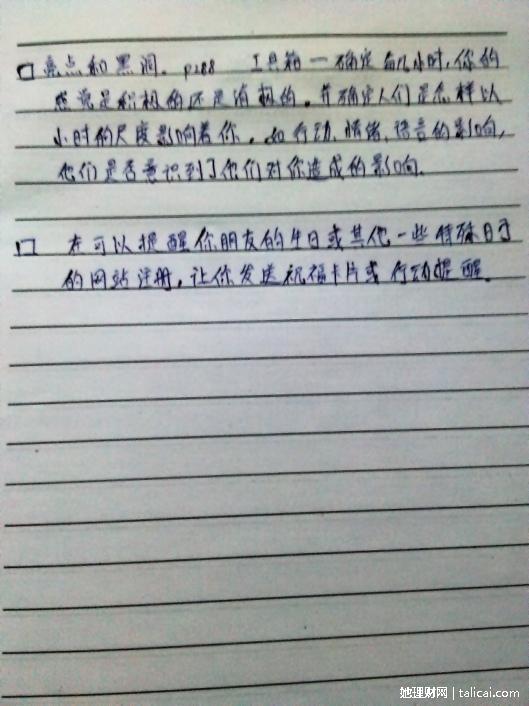 口 亮点和黑洞. P288 工具箱一确定每小时,你的
感觉是积极的还是消极的.并确定人们是怎样以
小时的尺度影响着你.如行动、情绪、语言的影响,
他们是否意识到了他们对你造成的影响.
口 在可以提醒你朋友的生日或其他一些特殊日子
的网站注册,让你发送祝福卡片或行动提醒.
她理财网 | talicai.com